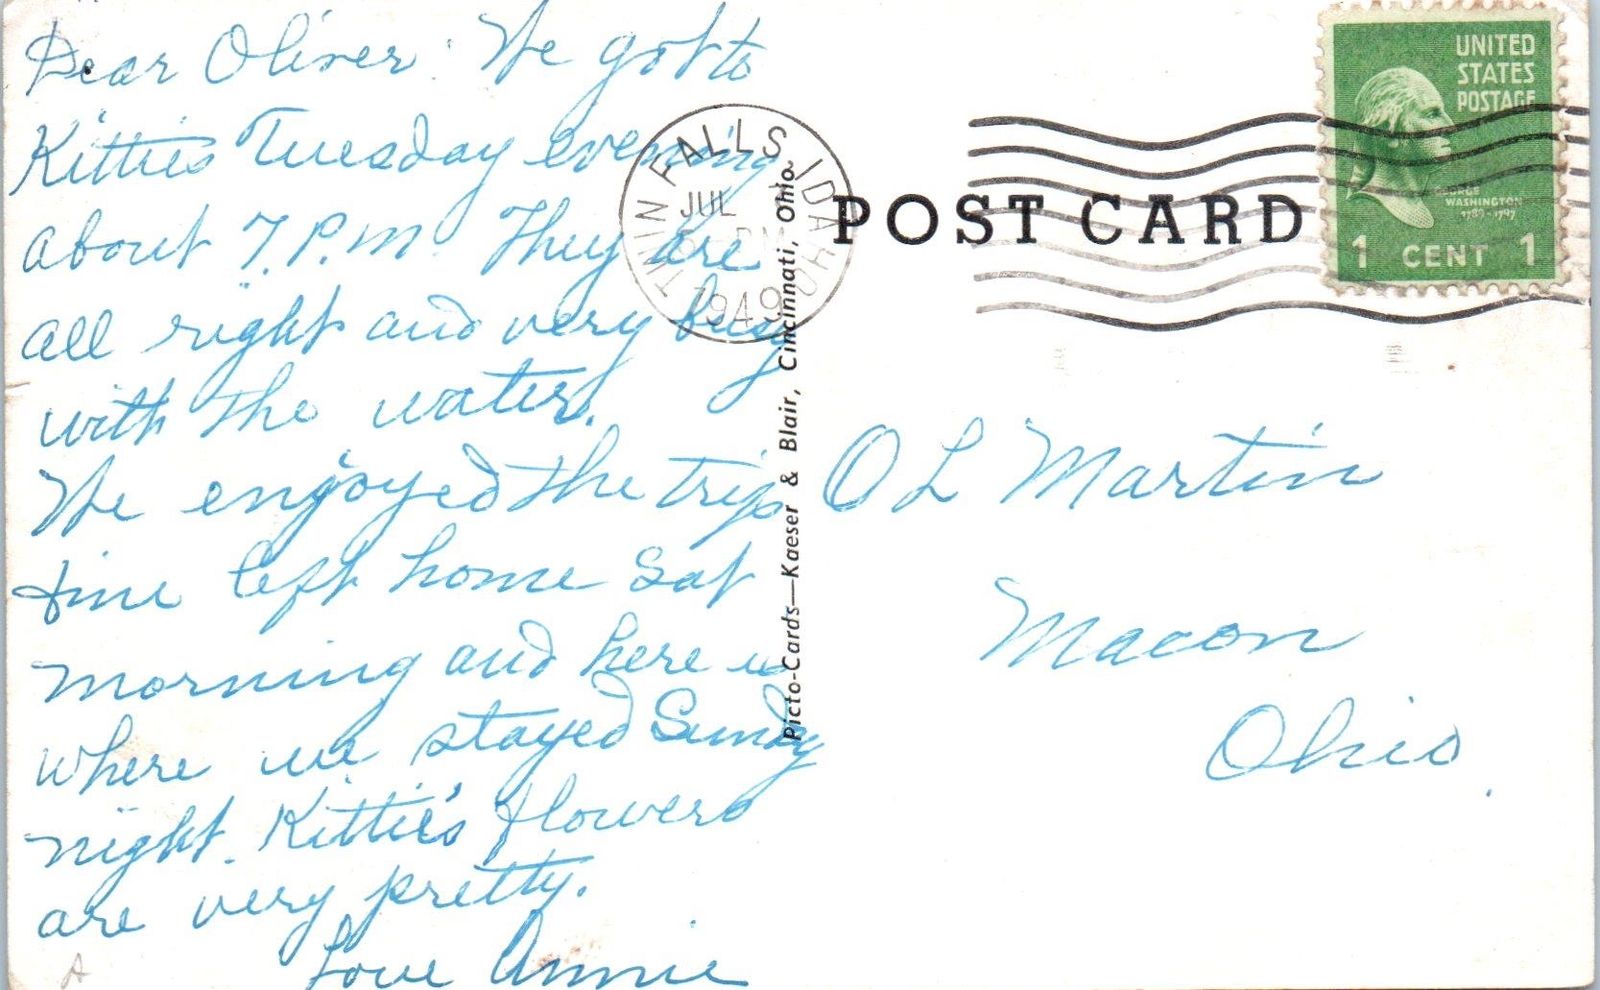 Dear Oliver: We got to
Kitties Tuesday evening
about 7. P.m. They are
all right and very busy
with the water.
We enjoyed the trip
fine left home Sat
morning and here is
where we stayed Sunday
night. Kittie's flowers
are very pretty.
Love Annie
A
TWIN FALLS, IDAHO
JUL
PM
1949
POST CARD
UNITED
STATES
POSTAGE
GEORGE
WASHINGTON
1789-1797
1 CENT 1
Picto-Cards—Kaeser & Blair, Cincinnati, Ohio.
O L Martin
Macon
Ohio.